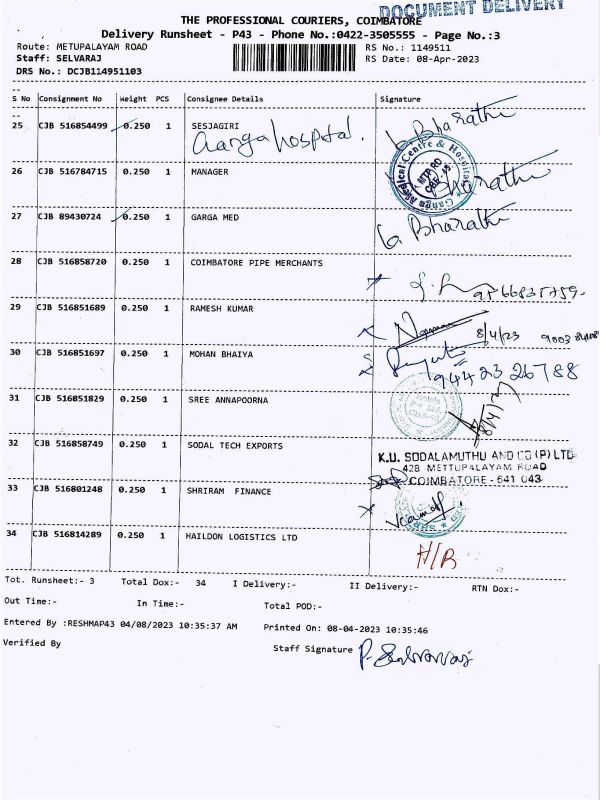 DOCUMENT DELIVERY
THE PROFESSIONAL COURIERS, COIMBATORE
Delivery Runsheet - P43 - Phone No.:0422-3505555 - Page No.:3
Route: METUPALAYAM ROAD RS No.: 1149511
Staff: SELVARAJ RS Date: 08-Apr-2023
DRS No.: DCJB114951103
S No Consignment No Weight PCS Consignee Details Signature
25 CJB 516854499 0.250 1 SESJAGIRI Bharathi
Ganga hospital.
26 CJB 516784715 0.250 1 MANAGER Bharathi
Ganga Medical Centre & Hospital
MTP RD
27 CJB 89430724 0.250 1 GARGA MED G. Bharathi
28 CJB 516858720 0.250 1 COIMBATORE PIPE MERCHANTS
29 CJB 516851689 0.250 1 RAMESH KUMAR 8/4/23
30 CJB 516851697 0.250 1 MOHAN BHAIYA
94423 26788
31 CJB 516851829 0.250 1 SREE ANNAPOORNA
32 CJB 516858749 0.250 1 SODAL TECH EXPORTS
K.U. SODALAMUTHU AND CO (P) LTD
428 METTUPALAYAM ROAD
COIMBATORE - 641 043
33 CJB 516801248 0.250 1 SHRIRAM FINANCE
34 CJB 516814289 0.250 1 HAILDON LOGISTICS LTD H/R
Tot. Runsheet:- 3 Total Dox:- 34 I Delivery:- II Delivery:- RTN Dox:-
Out Time:- In Time:- Total POD:-
Entered By :RESHMAP43 04/08/2023 10:35:37 AM Printed On: 08-04-2023 10:35:46
Verified By Staff Signature P. Selvaraj